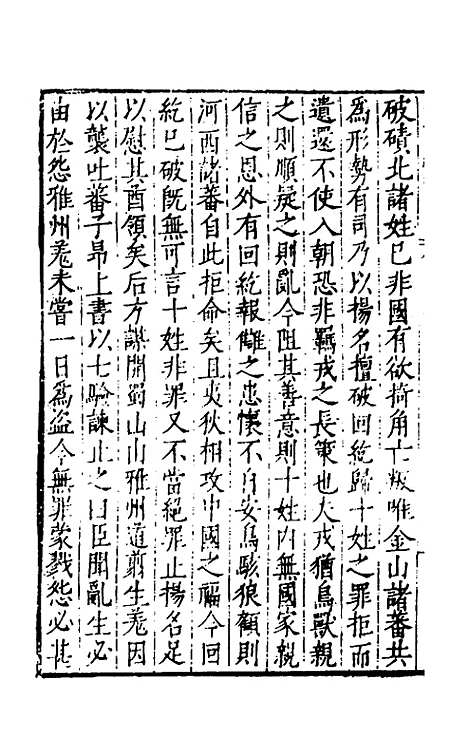 破磧北諸姓已非國有欲掎角亡叛唯金山諸蕃共
為形勢有司乃以揚名擅破回紇歸十姓之罪拒而
遣還不使入朝恐非羈戎之長策也夫戎猶鳥獸親
之則順疑之則亂今阻其善意則十姓内無國家親
信之恩外有回紇報讎之患懷不自安鳥駭狼顧則
河西諸蕃自此拒命矣且夷狄相攻中國之福今回
紇已破既無可言十姓非罪又不當絕罪止揚名足
以慰其酋領矣后方謀開蜀山山雅州道翦生羌因
以襲吐蕃子昂上書以七驗諫止之曰臣聞亂生必
由於怨雅州羌未嘗一日為盜今無罪蒙戮怨必甚